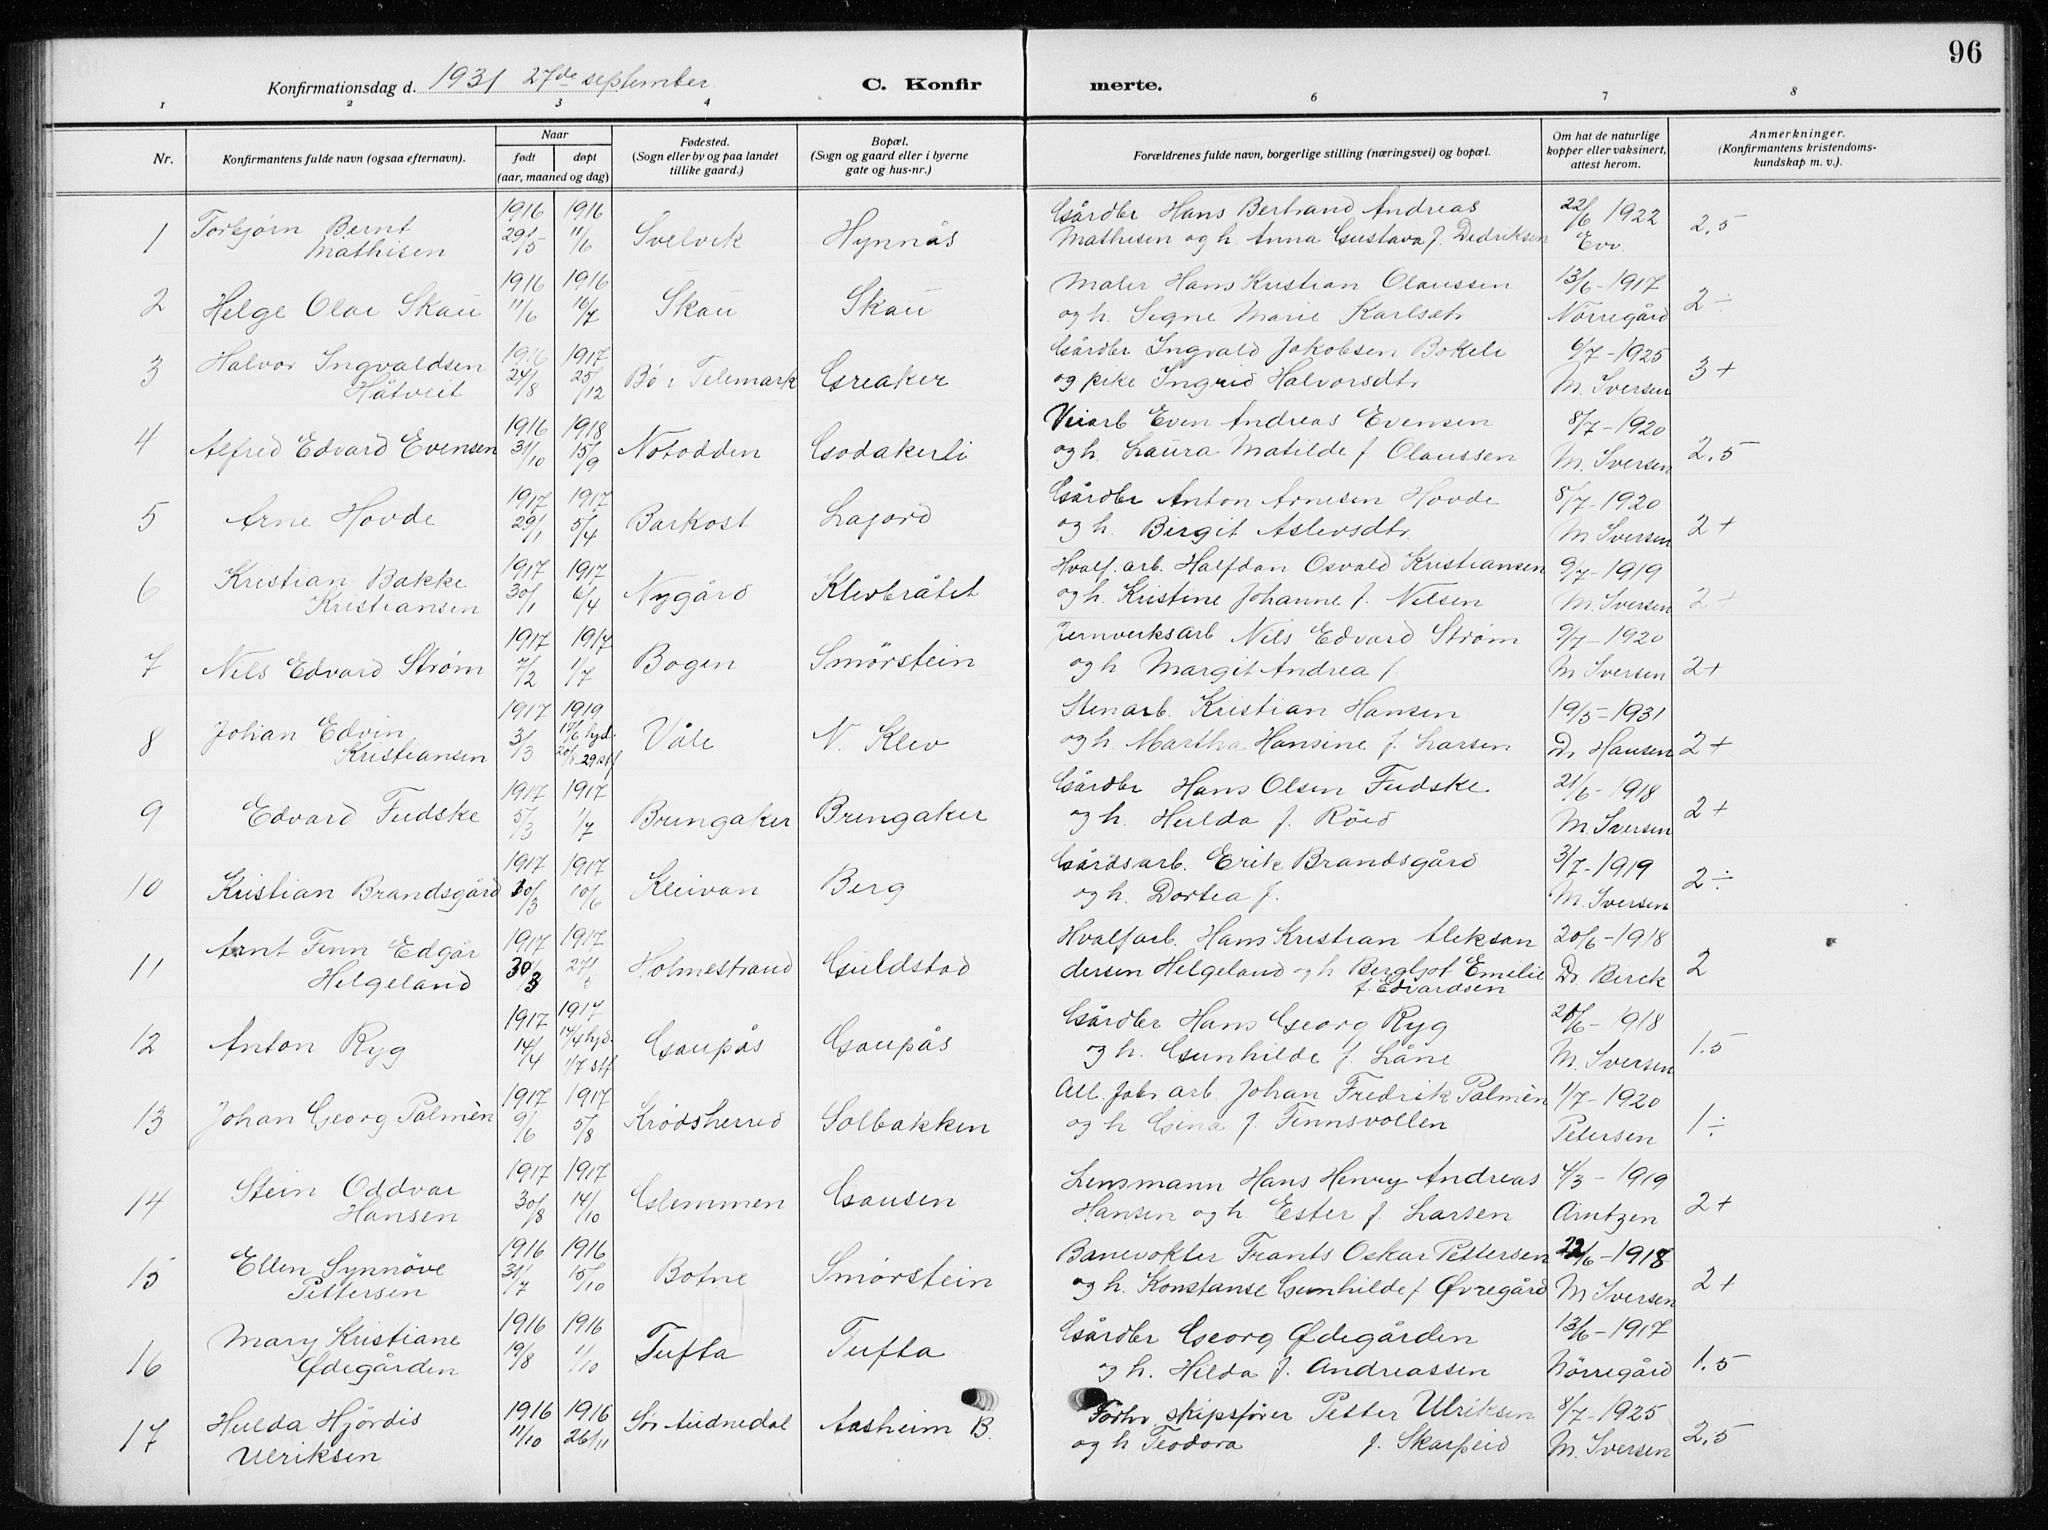 96
Konfirmationsdag d. 1931 27de september C. Konfirmerte.
1 2 3 4 5 6 7 8
Nr. Konfirmantens fulde navn (ogsaa efternavn). Naar født døpt (aar, maaned og dag) Fødested. (Sogn eller by og paa landet tillike gaard.) Bopæl. (Sogn og gaard eller i byerne gate og hus-nr.) Forældrenes fulde navn, borgerlige stilling (næringsvei) og bopæl. Om hat de naturlige kopper eller vaksinert, attest herom. Anmerkninger. (Konfirmantens kristendomskundskap m. v.).
1916 1916 Gårdbr Hans Bertrand Andreas 22/6 1922
1 Torbjørn Bernt Mathisen 29/5 11/6 Svelvik Hynnås Mathisen og h. Anna Gustava f. Dedriksen Evv. 2,5
1916 1916 Maler Hans Kristian Olaussen 13/6-1917
2 Helge Olav Skau 11/6 16/7 Skau Skau og h. Signe Marie Karlsdtr Nørregård 2÷
1916 1917 Gårdbr Ingvald Jakobsen Bokeli 6/7-1925
3 Halvor Ingvaldsen Håtveit 24/8 25/12 Bø i Telemark Greaker og pike Ingrid Halvorsdtr M. Iversen 3+
1916 1918 Veiarb Even Andreas Evensen 8/7-1920
4 Alfred Edvard Evensen 31/10 15/9 Notodden Godakerli og h. Laura Matilde f Olaussen M. Iversen 2,5
1917 1917 Gårdbr Anton Arnesen Hovde 8/7-1920
5 Arne Hovde 29/1 5/4 Barkost Lagord og h. Birgit Aslevsdtr M Iversen 2+
1917 1917 Hvalf. arb. Halfdan Osvald Kristiansen 9/7-1919
6 Kristian Bakke Kristiansen 30/1 6/4 Nygård Klevbråtet og h. Kristine Johanne f. Nilsen M. Iversen 2+
1917 1917 Jernverksarb Nils Edvard Strøm 9/7-1920
7 Nils Edvard Strøm 7/2 1/7 Bogen Smørstein og h Margit Andrea f. M Iversen 2+
1917 1919 Stenarb. Kristian Hansen 19/5-1931
8 Johan Edvin Kristiansen 3/3 17/6 hjd. 20/8 29 stf Våle N. Klev og h. Martha Hansine f. Larsen Dr Hansen 2+
1917 1917 Gårdbr Hans Olsen Fudske 21/6-1918
9 Edvard Fudske 5/3 1/7 Bringaker Bringaker og h. Hulda f. Röed M. Iversen 2+
1917 1917 Gårdsarb. Erik Brandsgård 3/7-1919
10 Kristian Brandsgård 10/3 10/6 Kleivan Berg og h. Dortea f. M. Iversen 2÷
1917 1917 Hvalfarb. Hans Kristian Aleksan 20/6-1918
11 Arnt Finn Edgar Helgeland 30/3 27/ Holmestrand Guldstad dersen Helgeland og h Bergljot Emilie f. Edvardsen Dr Birck 2
1917 1917 Gårdbr Hans Georg Ryg 21/6-1918
12 Anton Ryg 14/4 17/4 hjd. 1/7 stf Gaupås Gaupås og h. Gunhilde f. Låne M. Iversen 1.5
1917 1917 All. Jabr arb. Johan Fredrik Palmèn 1/7-1920
13 Johan Georg Palmèn 9/6 5/8 Krødsherred Solbakken og h Gina f. Finnsvollen Petersen 1÷
1917 1917 Lensmann Hans Henry Andreas 4/3-1919
14 Stein Oddvar Hansen 30/8 14/10 Glemmen Gausen Hansen og h. Ester f. Larsen Arntzen 2+
1916 1916 Banevokter Frants Oskar Pettersen 22/6-1918
15 Ellen Synnøve Pettersen 31/7 15/10 Botne Smørstein og h. Konstanse Gunhilde f Øvregård M Iversen 2+
1916 1916 Gårdbr Georg Ødegården 13/6-1917
16 Mary Kristiane Ødegården 19/8 1/10 Tufta Tufta og h. Hilda f. Andreassen Nørregård 1.5
1916 1916 Forhv skipsfører Petter Ulriksen 8/7-1925
17 Hulda Hjördis Ulriksen 11/10 26/11 Sør Audnedal Aasheim B. og h Teodora f. Skarpeid M. Iversen 2,5